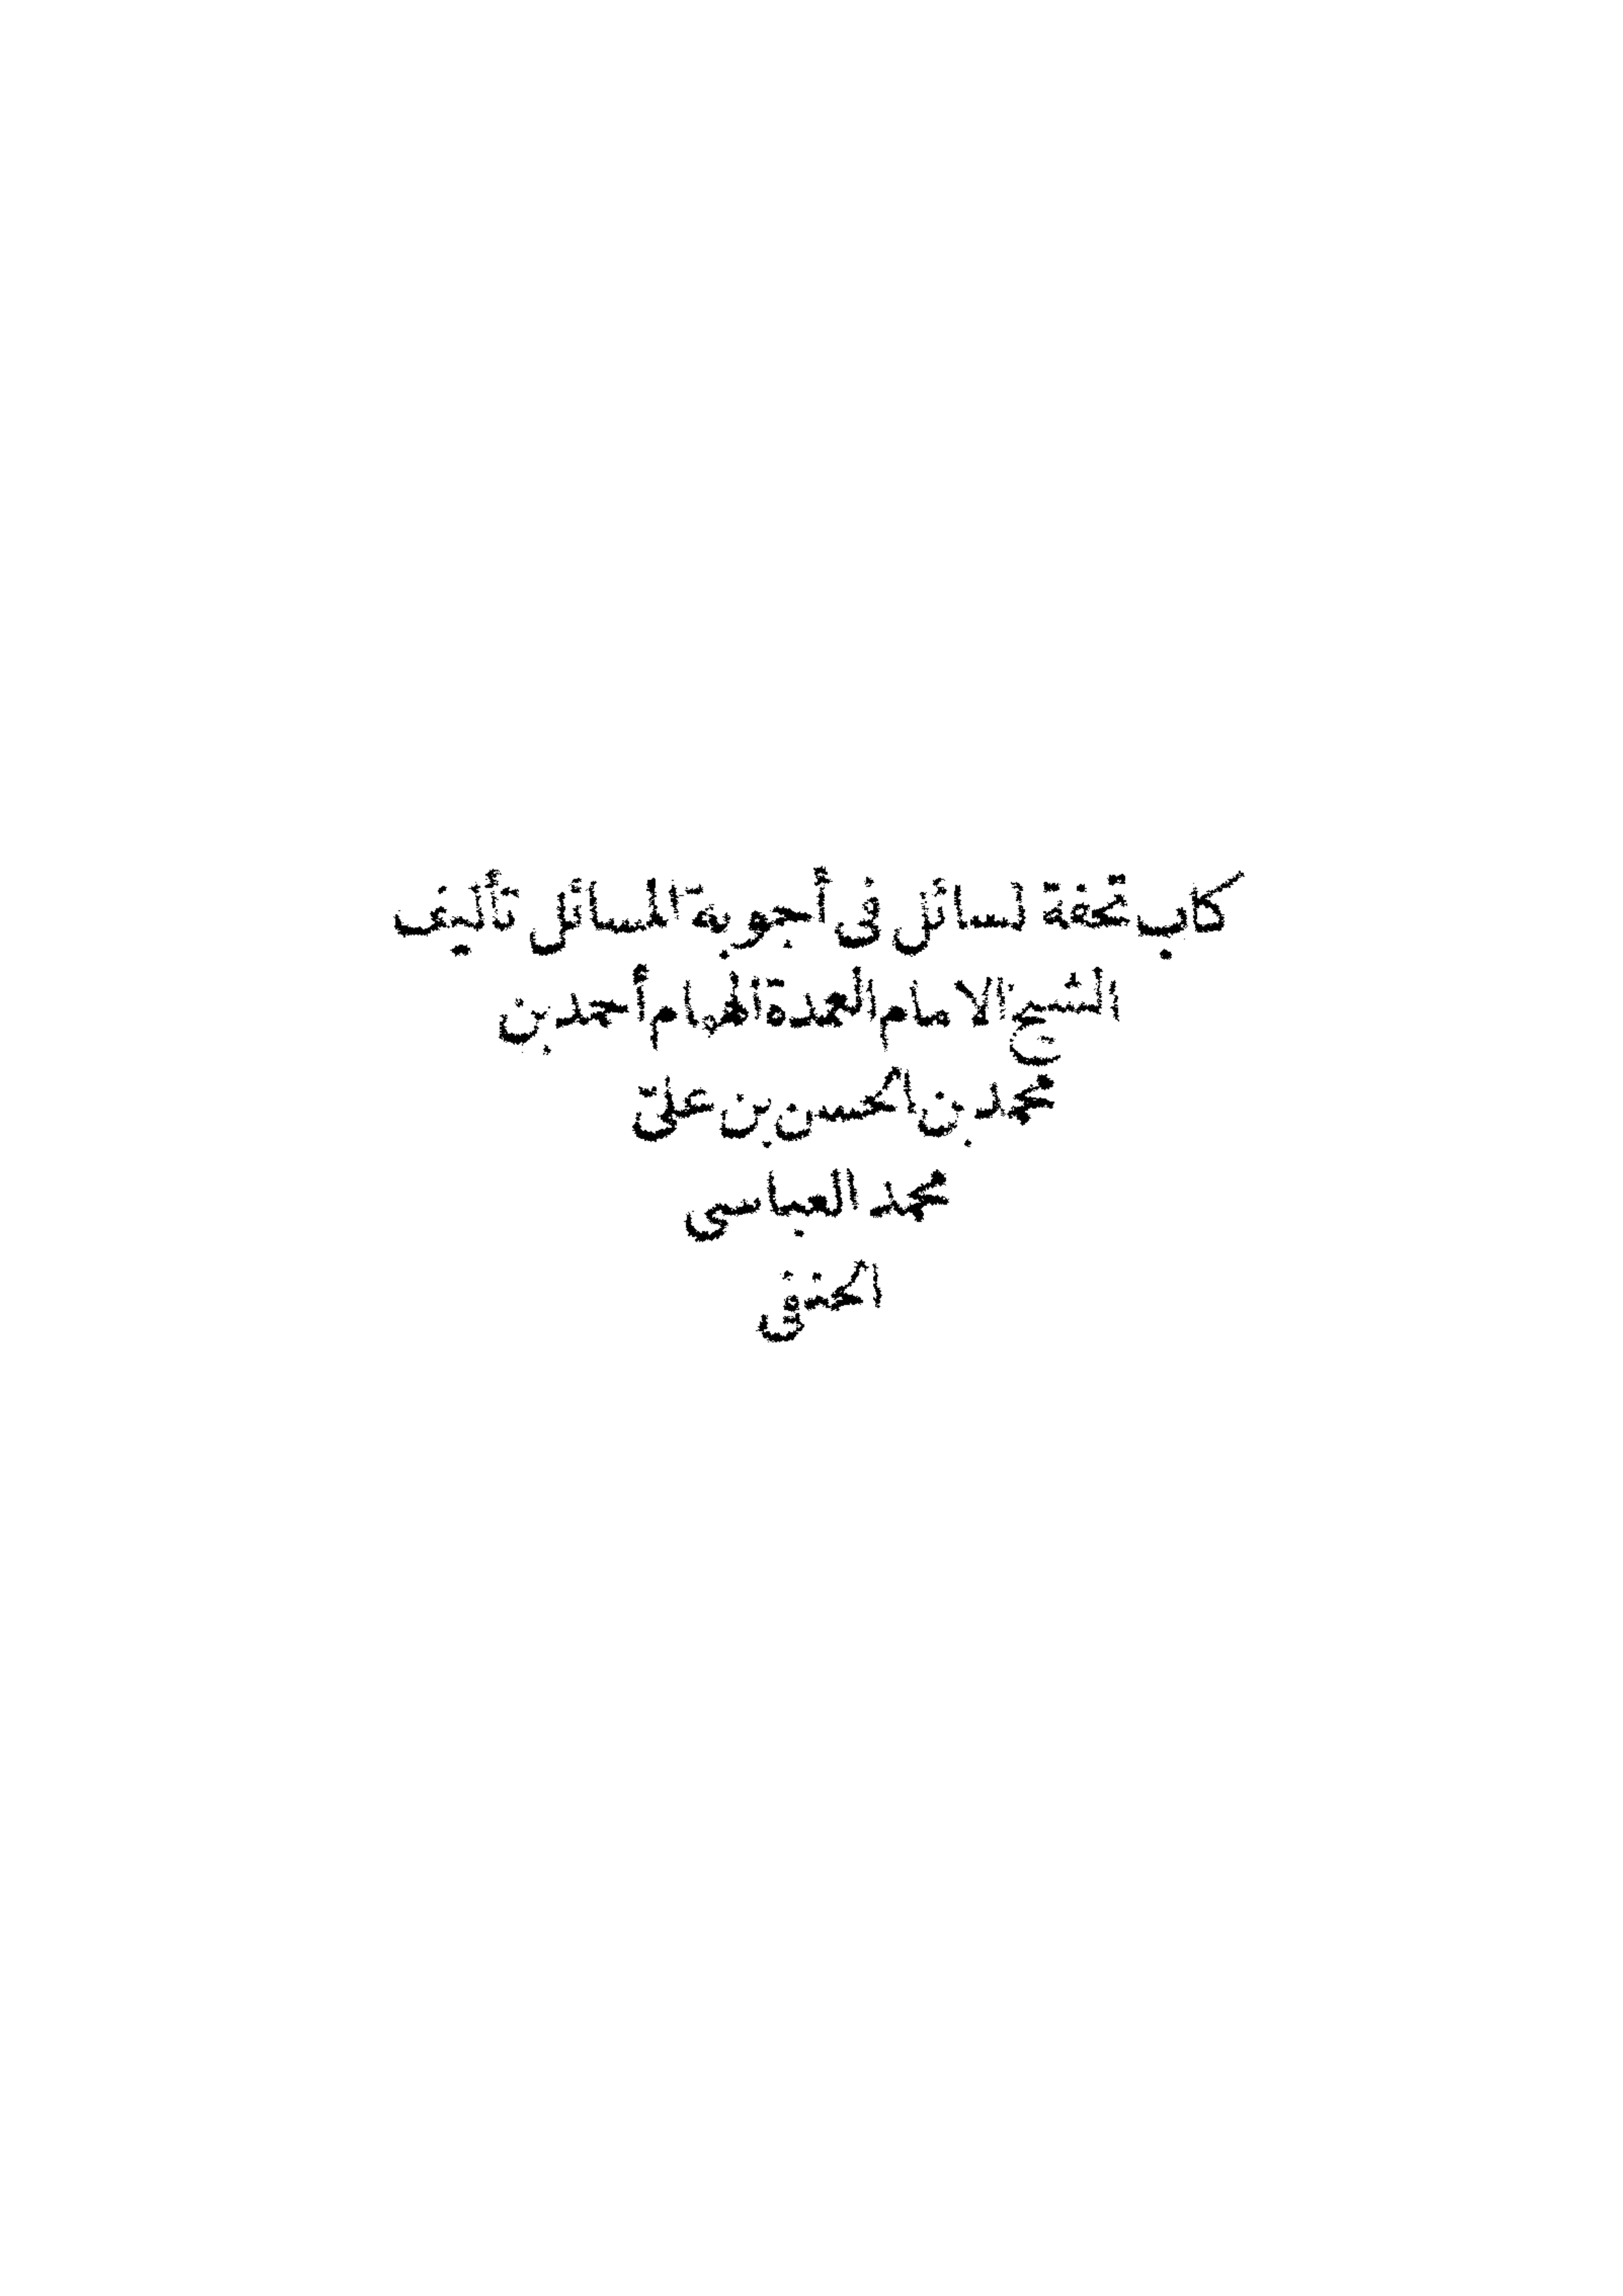 كتاب تحفة لسائل فى أجوبة المسائل تأليف
الشيخ الامام العمدة الهمام أحمد بن
محمد بن الحسن بن على
محمد العباسي
الحنفى